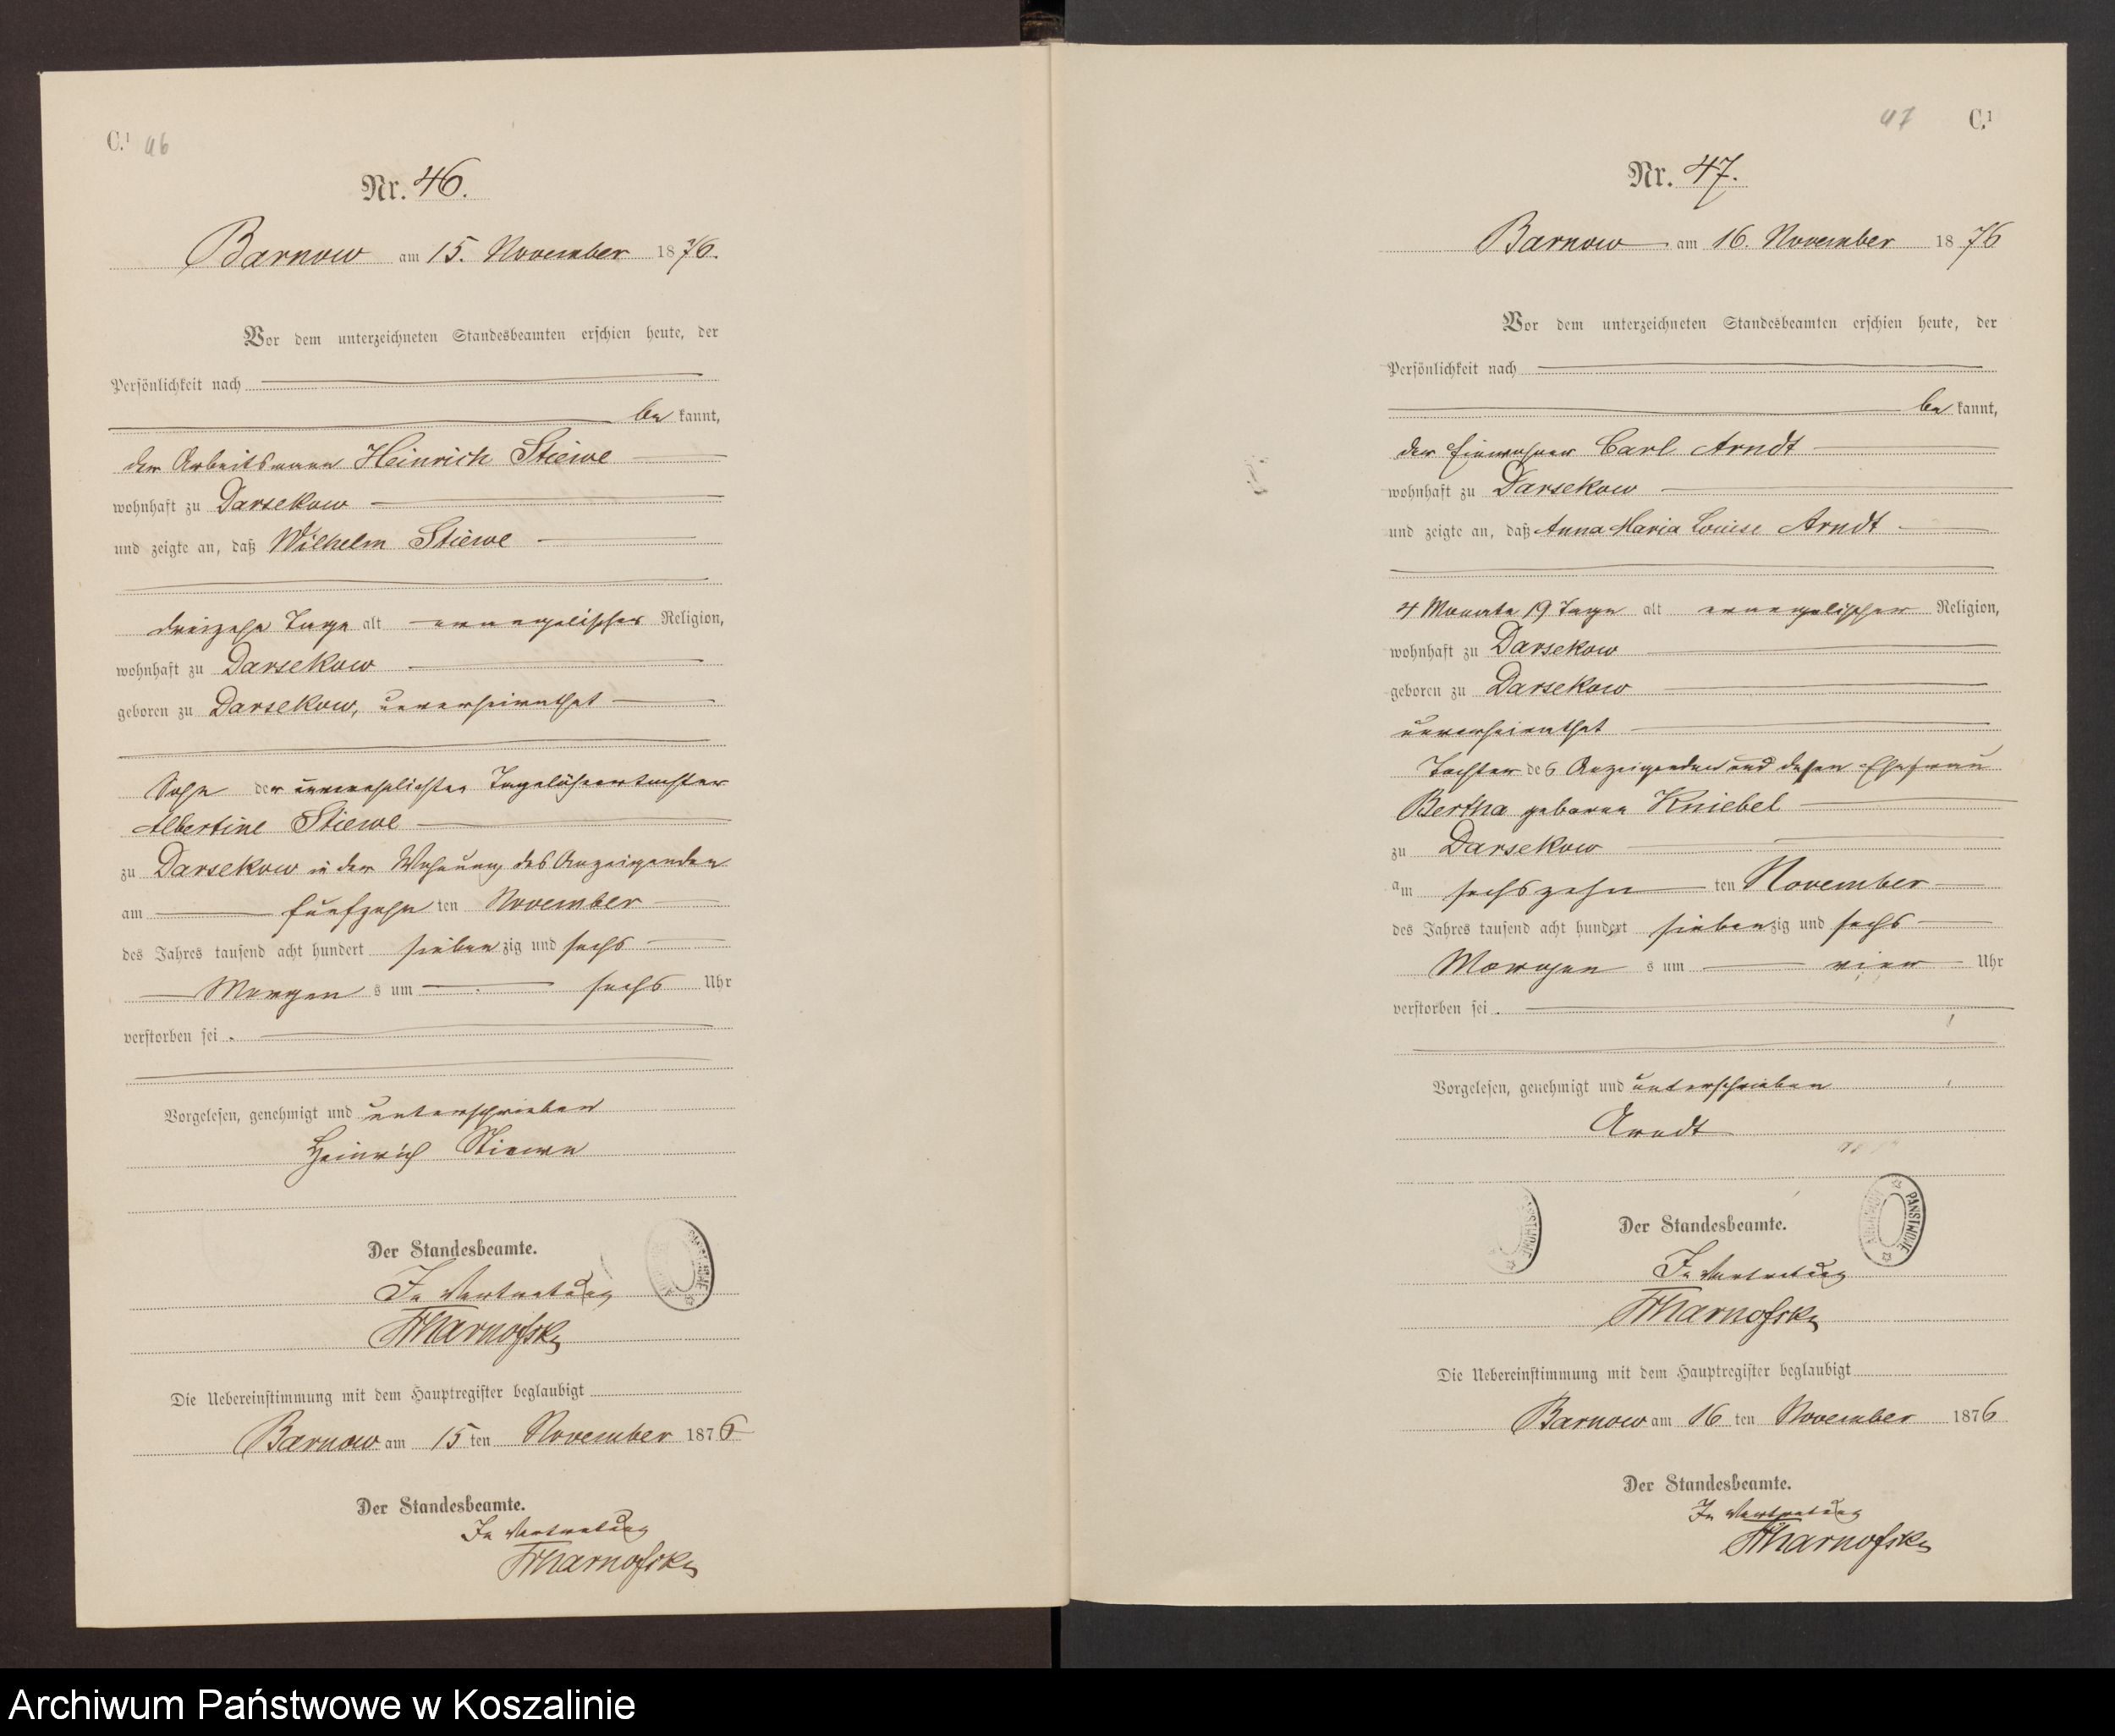 C.¹ 46
Nr. 46.
Barnow am 15. November 1876.
Vor dem unterzeichneten Standesbeamten erschien heute, der
Persönlichkeit nach
be kannt,
der Arbeitsmann Heinrich Stiewe
wohnhaft zu Darsekow
und zeigte an, daß Wilhelm Stiewe
dreizehn Tage alt evangelischer Religion,
wohnhaft zu Darsekow
geboren zu Darsekow, unverheirathet
Sohn der unverehelichten Tagelöhnertochter
Albertine Stiewe
zu Darsekow in der Wohnung des Anzeigenden
am fünfzehn ten November
des Jahres tausend acht hundert siebenzig und sechs
Morgens um sechs Uhr
verstorben sei.
Vorgelesen, genehmigt und unterschrieben
Heinrich Stiewe
Der Standesbeamte.
In Vertretung
Die Uebereinstimmung mit dem Hauptregister beglaubigt
Barnow am 15 ten November 1876
Der Standesbeamte.
In Vertretung
47 C.¹
Nr. 47.
Barnow am 16. November 1876
Vor dem unterzeichneten Standesbeamten erschien heute, der
Persönlichkeit nach
be kannt,
der Einwohner Carl Arndt
wohnhaft zu Darsekow
und zeigte an, daß Anna Maria Louise Arndt
4 Monate 19 Tage alt evangelischer Religion,
wohnhaft zu Darsekow
geboren zu Darsekow
unverheirathet
Tochter des Anzeigenden und dessen Ehefrau
Bertha geborene Kniebel
zu Darsekow
am sechszehn ten November
des Jahres tausend acht hundert siebenzig und sechs
Morgens um vier Uhr
verstorben sei.
Vorgelesen, genehmigt und unterschrieben
Arndt
ARCHIWUM PAŃSTWOWE
Der Standesbeamte.
In Vertretung
Die Uebereinstimmung mit dem Hauptregister beglaubigt
Barnow am 16 ten November 1876
Der Standesbeamte.
In Vertretung
Archiwum Państwowe w Koszalinie